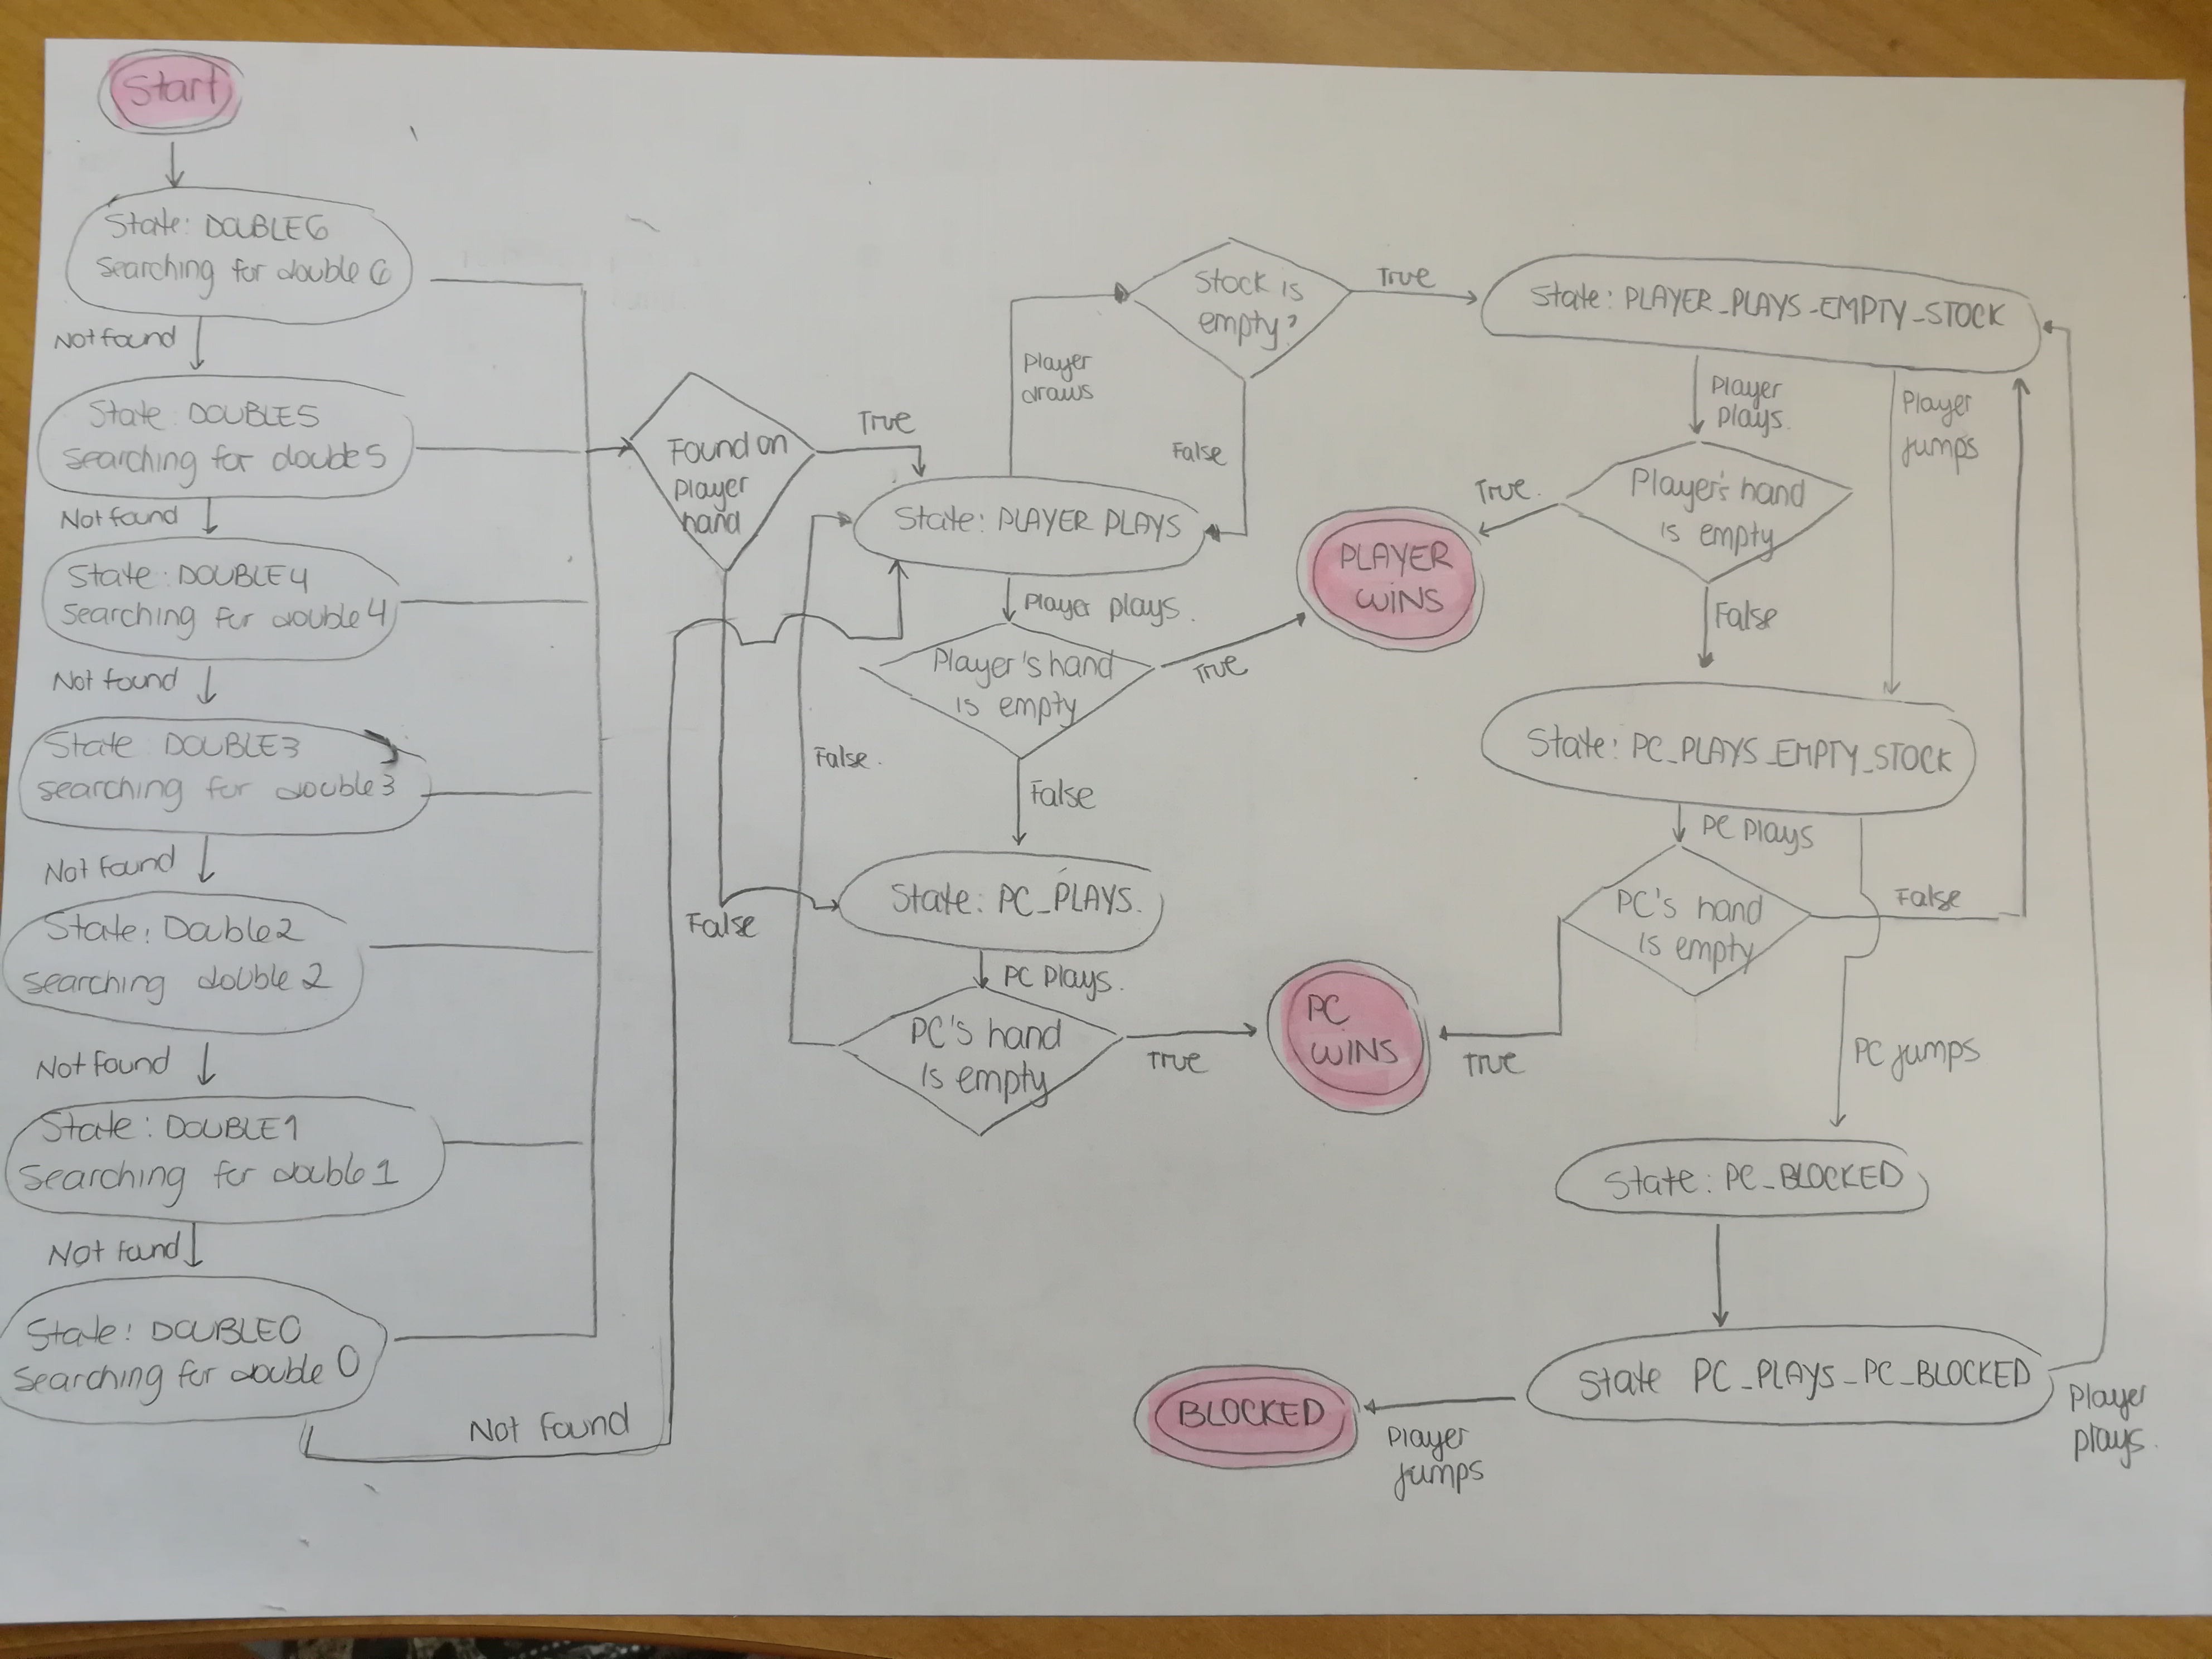 Start
State: DOUBLE6
Searching for double 6
Not found
State: DOUBLE5
searching for double 5
Not found
State: DOUBLE4
Searching for double 4
Not found
State: DOUBLE3
searching for double 3
Not found
State: Double2
searching double 2
Not found
State: DOUBLE1
Searching for double 1
Not found
State: DOUBLE0
Searching for double 0
Not found
Found on
player
hand
True
False
State: PLAYER PLAYS
Player
draws
Stock is
empty?
True
False
Player plays.
Player's hand
is empty
True
False
PLAYER
WINS
State: PC_PLAYS.
PC Plays.
PC's hand
is empty
False.
True
PC
WINS
State: PLAYER_PLAYS_EMPTY_STOCK
Player
plays.
Player
jumps
Player's hand
is empty
True.
False
State: PC_PLAYS_EMPTY_STOCK
PC Plays
PC's hand
is empty
False
True
PC jumps
State: PC_BLOCKED
State PC_PLAYS_PC_BLOCKED
Player
plays.
Player
jumps
BLOCKED